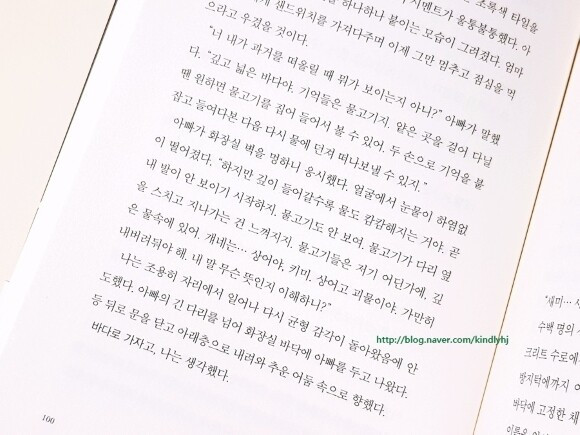 초록색 타일을
하나하나 붙이는 모습이 그려졌다. 엄마
샌드위치를 가져다주며 이제 그만 멈추고 점심을 먹
으라고 우겼을 것이다.
"너 내가 과거를 떠올릴 때 뭐가 보이는지 아니?" 아빠가 말했
다. "깊고 넓은 바다야. 기억들은 물고기지. 얕은 곳을 걸어 다닐
땐 원하면 물고기를 집어 들어서 볼 수 있어. 두 손으로 기억을 붙
잡고 들여다본 다음 다시 물에 던져 떠나보낼 수 있지."
아빠가 화장실 벽을 멍하니 응시했다. 얼굴에서 눈물이 하염없
이 떨어졌다. "하지만 깊이 들어갈수록 물도 캄캄해지는 거야. 곧
내 발이 안 보이기 시작하지. 물고기도 안 보여. 물고기가 다리 옆
을 스치고 지나가는 건 느껴지지. 물고기들은 저기 어딘가에, 깊
은 물속에 있어. 걔네는… 상어야, 키미. 상어고 괴물이야. 가만히
내버려둬야 해. 내 말 무슨 뜻인지 이해하니?"
나는 조용히 자리에서 일어나 다시 균형 감각이 돌아왔음에 안
도했다. 아빠의 긴 다리를 넘어 화장실 바닥에 아빠를 두고 나왔다.
등 뒤로 문을 닫고 아래층으로 내려와 추운 어둠 속으로 향했다.
바다로 가자고, 나는 생각했다.
160
http://blog.naver.com/kindlyhj
"새미…
수백 명의
크리트 수로에
방지턱에까지
바닥에 고정한 채